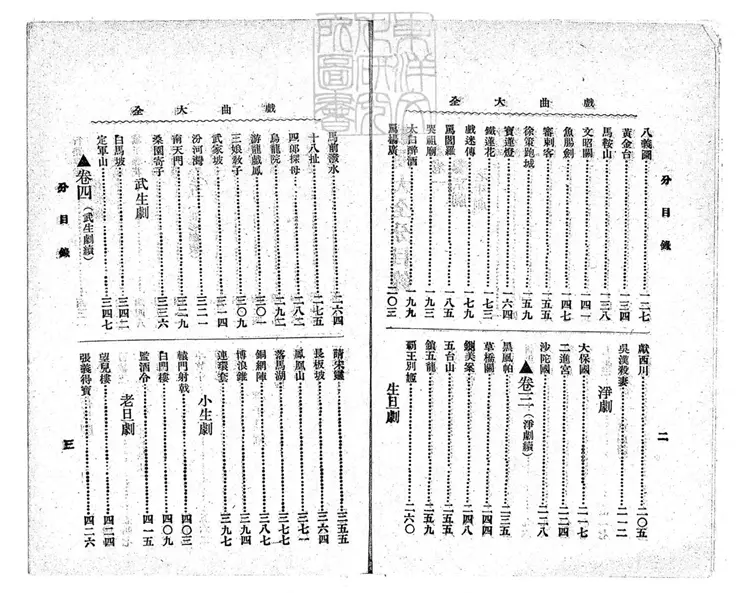 戲曲大全
分目錄
二
八義圖一二七
黃金台一三四
馬鞍山一三八
文昭關一四一
魚腸劍一四七
審刺客一五五
徐策跑城一五九
寶蓮燈一六四
鐵蓮花一七三
戲迷傳一七六
罵閻羅一八五
喪祖廟一九三
太白醉酒一九九
罵楊廣二〇三
獻西川二〇五
吳漢殺妻二一二
淨劇
大保國二一七
二進宮二二四
沙陀國二二八
▲卷三(淨劇續)
黑風帕二三五
草橋關二四四
鍘美案二四八
五台山二五五
鎖五龍二五九
霸王別姬二六〇
生旦劇
戲曲大全
馬前潑水二六四
十八扯二七五
四郎探母二八二
烏龍院二九二
游龍戲鳳三〇一
三娘教子三〇九
武家坡三一四
汾河灣三二一
南天門三二九
桑園寄子三三六
武生劇
白馬坡三四二
定軍山三四七
▲卷四(武生劇續)
分目錄
請宋靈三五五
長板坡三六四
鳳凰山三七一
落馬湖三七七
銅網陣三八七
博浪錐三九四
連環套三九七
小生劇
轅門射戟四〇三
白門樓四〇九
監酒令四一五
老旦劇
望兒樓四二四
張義得寶四二六
三